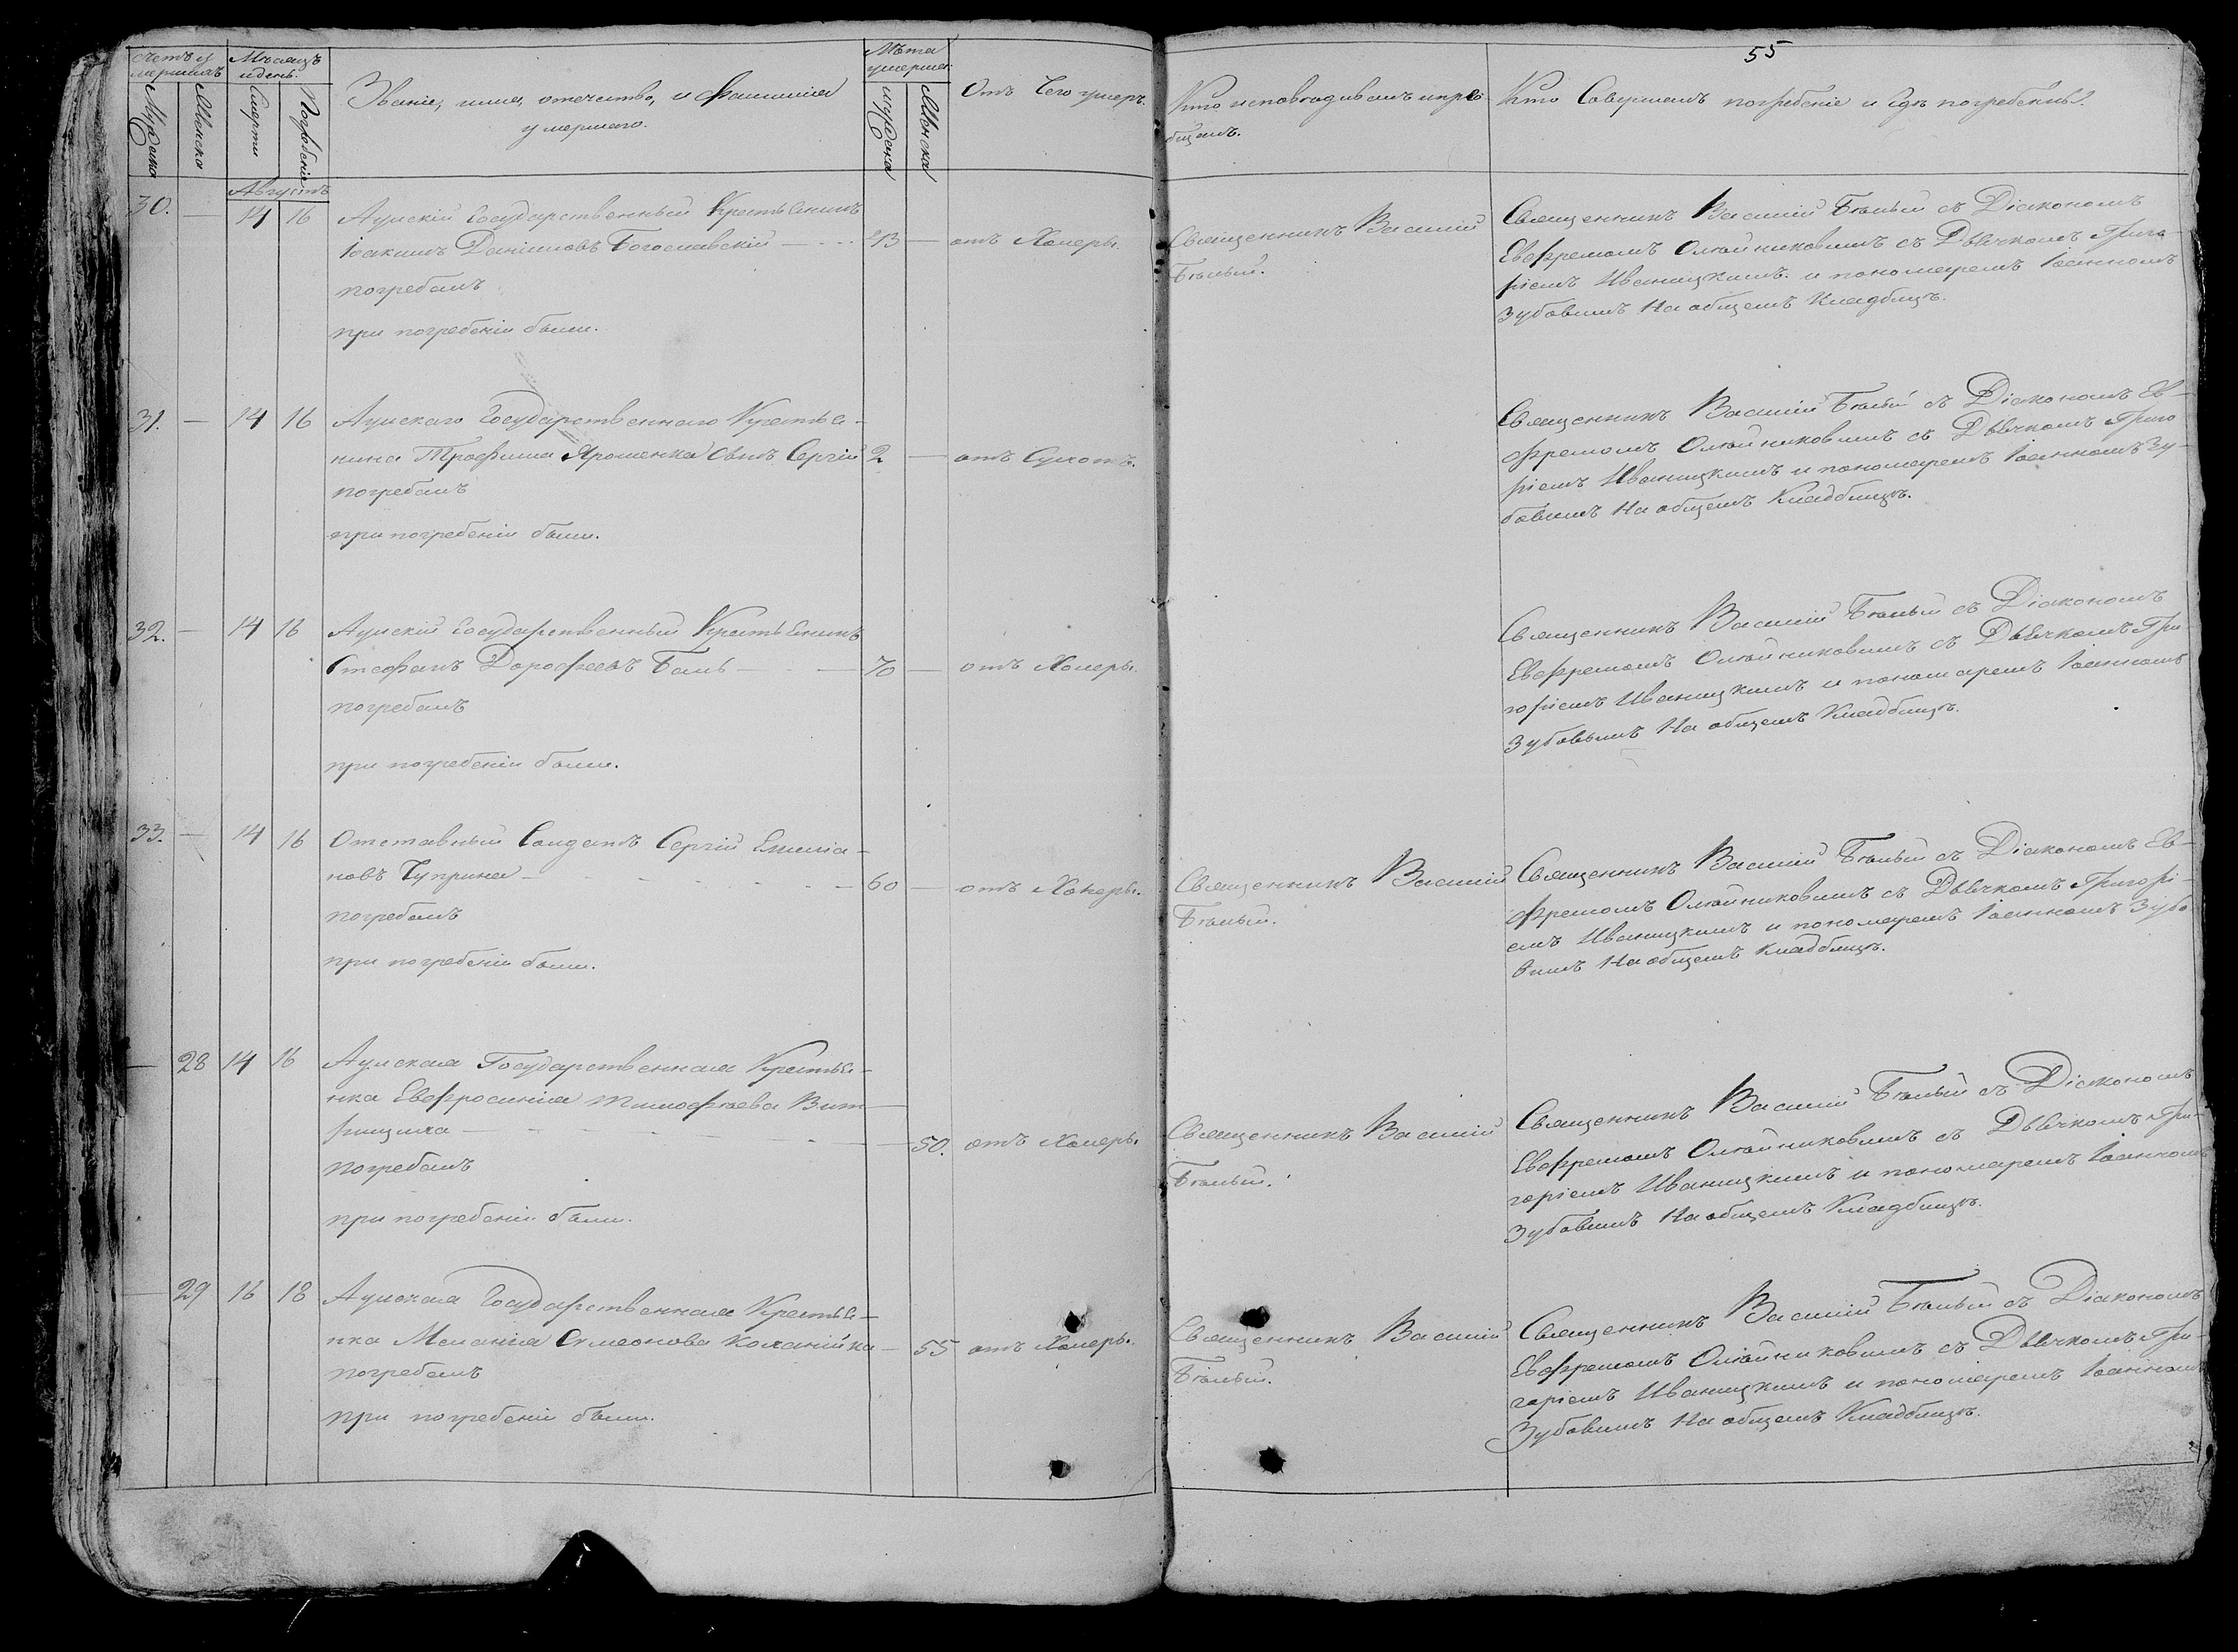 55
Счетъ у
мершихъ
Мѣсяцъ
и день.
Званіе, имя, отечество, и фамилія
умершаго.
Лѣта
умерша:
Отъ чего умеръ.
Кто исповѣдивалъ и прі
общалъ.
Кто Совершалъ погребеніе и гдѣ погребены.
Мужеска
Женска
Смерти
Погребенія
мужеска
Женска
Августъ
30. — 14 16 Аулскій Государственный Крестьянинъ
Іоакимъ Даніиловъ Богославскій — 43 — отъ Холеры.
погребалъ
при погребеніи были.
Священникъ Василій
Бѣлый.
Священникъ Василій Бѣлый съ Діакономъ
Евфремомъ Олѣйниковымъ съ Дьячкомъ Григо-
ріемъ Иваницкимъ и пономаремъ Іоанномъ
Зубовымъ На общемъ Кладбищѣ.
31. — 14 16 Аулскаго Государственнаго Крестья-
нина Трофима Ярошенка сынъ Сергій 2 — отъ Сухотъ.
погребалъ
при погребеніи были.
Священникъ Василій Бѣлый съ Діакономъ Ев-
фремомъ Олѣйниковымъ съ Дьячкомъ Григо
ріемъ Иваницкимъ и пономаремъ Іоанномъ Зу-
бовымъ На общемъ Кладбищѣ.
32. — 14 16 Аулскій Государственный Крестьянинъ
Стефанъ Дорофеевъ Баль — 70 — отъ Холеры.
погребалъ
при погребеніи были.
Священникъ Василій Бѣлый съ Діакономъ
Евфремомъ Олѣйниковымъ съ Дьячкомъ Гри
горіемъ Иваницкимъ и пономаремъ Іоанномъ
Зубовымъ На общемъ Кладбищѣ.
33. — 14 16 Отставный Солдатъ Сергій Емилiа-
новъ Чуприна — 60 — отъ Холеры.
погребалъ
при погребеніи были.
Священникъ Василій
Бѣлый.
Священникъ Василій Бѣлый съ Діакономъ Ев-
фремомъ Олѣйниковымъ съ Дьячкомъ Григорі-
емъ Иваницкимъ и пономаремъ Іоанномъ Зубо
вымъ На общемъ Кладбищѣ.
— 28 14 16 Аулская Государственная Крестья-
нка Евфросинія Тимофѣева Вит-
рищиха — 50. отъ Холеры.
погребалъ
при погребеніи были.
Священникъ Василій
Бѣлый.
Священникъ Василій Бѣлый съ Діакономъ
Евфремомъ Олѣйниковымъ съ Дьячкомъ Гри-
горіемъ Иваницкимъ и пономаремъ Іоанномъ
Зубовымъ На общемъ Кладбищѣ.
— 29 16 18 Аулская Государственная Крестья-
нка Меланія Симеонова Коханійка — 55 отъ Холеры.
погребалъ
при погребеніи были.
Священникъ Василій
Бѣлый.
Священникъ Василій Бѣлый съ Діакономъ
Евфремомъ Олѣйниковымъ съ Дьячкомъ Гри-
горіемъ Иваницкимъ и пономаремъ Іоанномъ
Зубовымъ На общемъ Кладбищѣ.